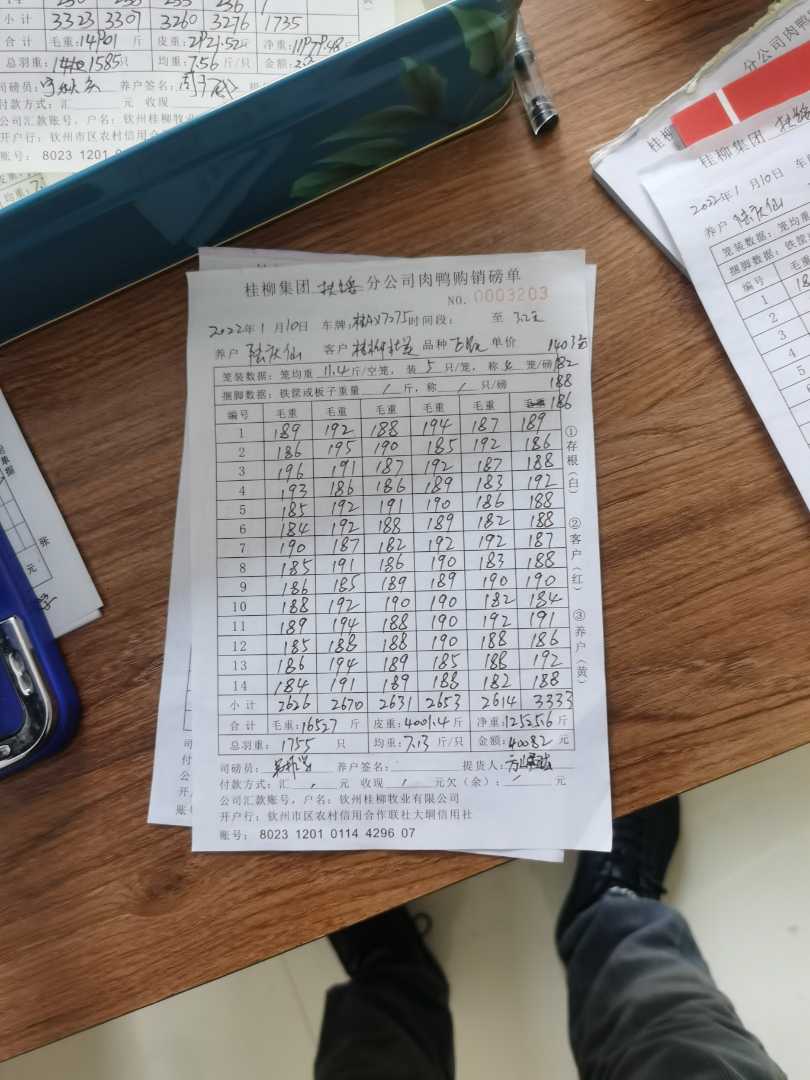 小计 3323 3307 3260 3276 1735
合计 毛重:14901 斤 皮重:2921.52斤 净重:11979.48斤
总羽重: 1585只 均重:7.56斤/只 金额:
司磅员: 养户签名:
付款方式:汇 元 收现
公司汇款账号,户名:钦州桂柳牧业
开户行:钦州市区农村信用合
账号: 8023 1201 0
分公司肉鸭
桂柳集团
2022年1月10日 车
养户
笼装数据:笼均重
捆脚数据:铁筐
编号 毛重
1
2
3
4
5
6
7
张
元
桂柳集团 分公司肉鸭购销磅单
NO. 0003203
2022年1月10日 车牌:桂AX7275 时间段: 至
养户 客户 桂柳 品种 单价
笼装数据:笼均重 11.4斤/空笼,装 5 只/笼,称 笼/磅 182
捆脚数据:铁筐或板子重量 / 斤,称 / 只/磅 188
编号 毛重 毛重 毛重 毛重 毛重 186
1 189 192 188 194 187 189
2 186 195 190 185 192 186
3 196 191 187 192 187 188
4 193 186 186 189 183 192
5 185 192 191 190 186 188
6 184 192 188 189 182 188
7 190 187 182 192 192 187
8 185 191 186 190 183 188
9 186 185 189 189 190 190
10 188 192 190 190 182 184
11 189 194 188 190 192 191
12 185 188 188 190 188 186
13 186 194 189 185 188 192
14 184 191 189 188 182 188
小计 2626 2670 2631 2653 2614 3333
合计 毛重:16527 斤 皮重:4001.4斤 净重:12525.6斤
总羽重: 1755 只 均重:7.13斤/只 金额:40082元
司磅员: 养户签名: 提货人:
付款方式:汇 / 元 收现 / 元欠(余): / 元
公司汇款账号,户名:钦州桂柳牧业有限公司
开户行:钦州市区农村信用合作联社大垌信用社
账号: 8023 1201 0114 4296 07
①存根(白)
②客户(红)
③养户(黄)